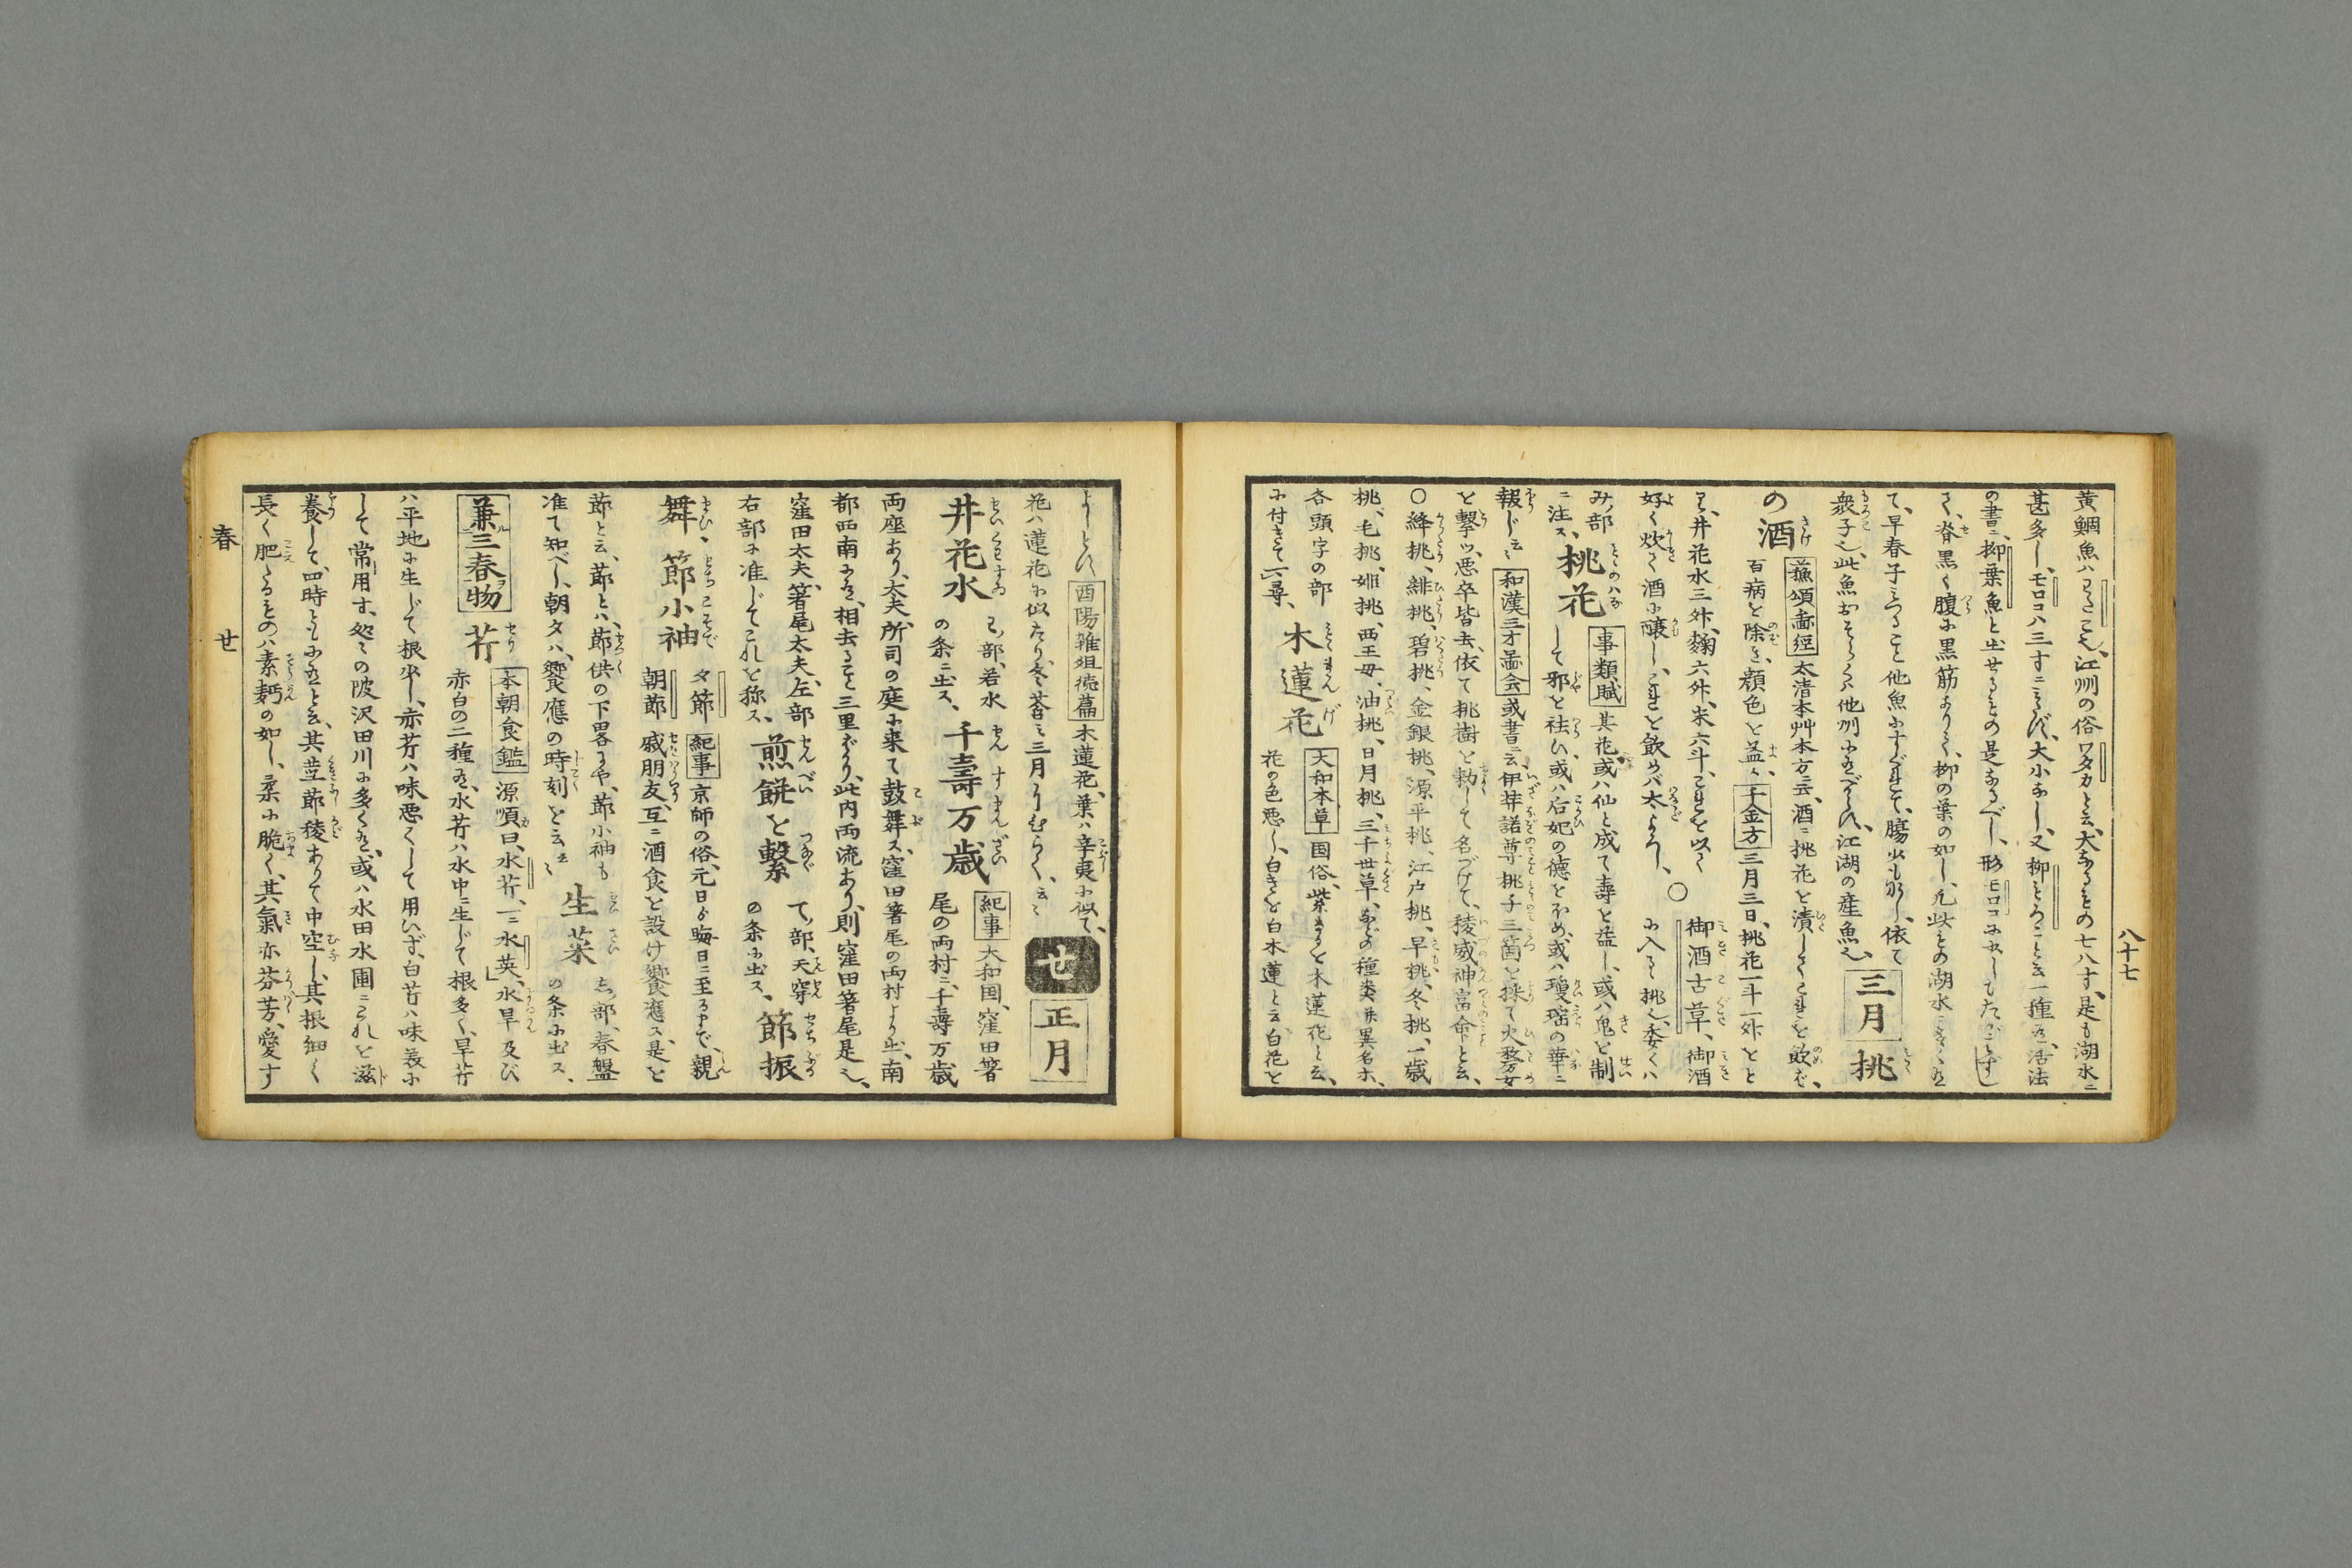 黄鯛魚ハわたこ也、江州の俗ワタカと云、大なるもの七八寸、是も湖水ニ
甚多し、モロコハ三寸ニ及び、大小なし、又柳もろこと云一種有、活法
の書ニ、柳葉魚と出せるもの是なるべし、形モロコに
く、脊黒く腹に黒筋ありて、柳の葉の如し、凡此もの湖水ニ多く有
て、早春子をもつこと他魚にすぐれて、腸少も形し、依て
衆子也、此魚おそらくハ他州に有べからず、江湖の産魚也、
三月
桃
の酒
蘓頌圖經
太清本艸本方云、酒ニ桃花を漬してこれを飲ば、
百病を除き、顔色を益ス、
千金方
三月三日、桃花一斗一升をと
り、井花水三升、麹六升、米六斗、これを以て
好く炊て酒に醸し、これを飲めバ太よろし、
○
御酒古草、御酒
に入る桃也、委くハ
みノ部
ニ注ス、
桃花
事類賦
其花、或ハ仙と成て壽を益し、或ハ鬼を制
して邪を祛ひ、或ハ后妃の徳をほめ、或ハ瓊瑶の華ニ
報じ云々
和漢三才圖会
或書ニ云、伊弉諾尊桃子三箇を採て火醜女
を撃ツ、悪卒皆去、依て桃樹を勅して名づけて、稜威神富命と云、
○絳桃、緋桃、碧桃、金銀桃、源平桃、江戸桃、早桃、冬桃、一歳
桃、毛桃、姫桃、西王母、油桃、日月桃、三千世草、などの種类并異名ホ、
各頭字の部
に付きて可尋、
木蓮花
大和本草
国俗、紫なるを木蓮花と云、
花の色悪し、白きを白木蓮と云、白花を
八十七
よしとす、
酉陽雑俎続篇
木蓮花、葉ハ辛夷に似て、
花ハ蓮花に似たり、冬蒼ミ三月にひらく、云々
せ
正月
井花水
わノ部、若水
の条ニ出ス、
千壽万歳
紀事
大和国、窪田箸
尾の両村ニ、千壽万歳
両座あり、太夫、所司の庭に来て鼓舞ス、窪田箸尾の両村より出、南
都西南に有、相去ること三里ばかり、此内両流あり、則窪田箸尾是也、
窪田太夫、箸尾太夫、左部
右部に准じてこれを称ス、
煎餅を繫
てノ部、天穿
の条に出ス、
節振
舞
節小袖
夕節
朝節
紀事
京師の俗、元日ゟ晦日ニ至るまで、親
戚朋友互ニ酒食を設け饗應ス、是を
節と云、節とハ、節供の下畧にや、節小袖も
准て知べし、朝夕ハ、饗應の時刻を云云々
生菜
志ノ部、春盤
の条に出ス、
兼三春物
芹
本朝食鑑
源順曰、水芹、一ニ水英、水旱及び
赤白の二種有、水芹ハ水中ニ生じて根多く、旱芹
ハ平地に生じて根少し、赤芹ハ味悪くして用ひず、白芹ハ味美に
して常用す、処々の陂沢田川に多く有、或ハ水田水圃ニこれを滋
養して、四時ともに有と云、其茎節稜ありて中空し、其根細く
長く肥たるものハ素麪の如し、柔に脆く、其氣亦芬芳、愛す
春
せ